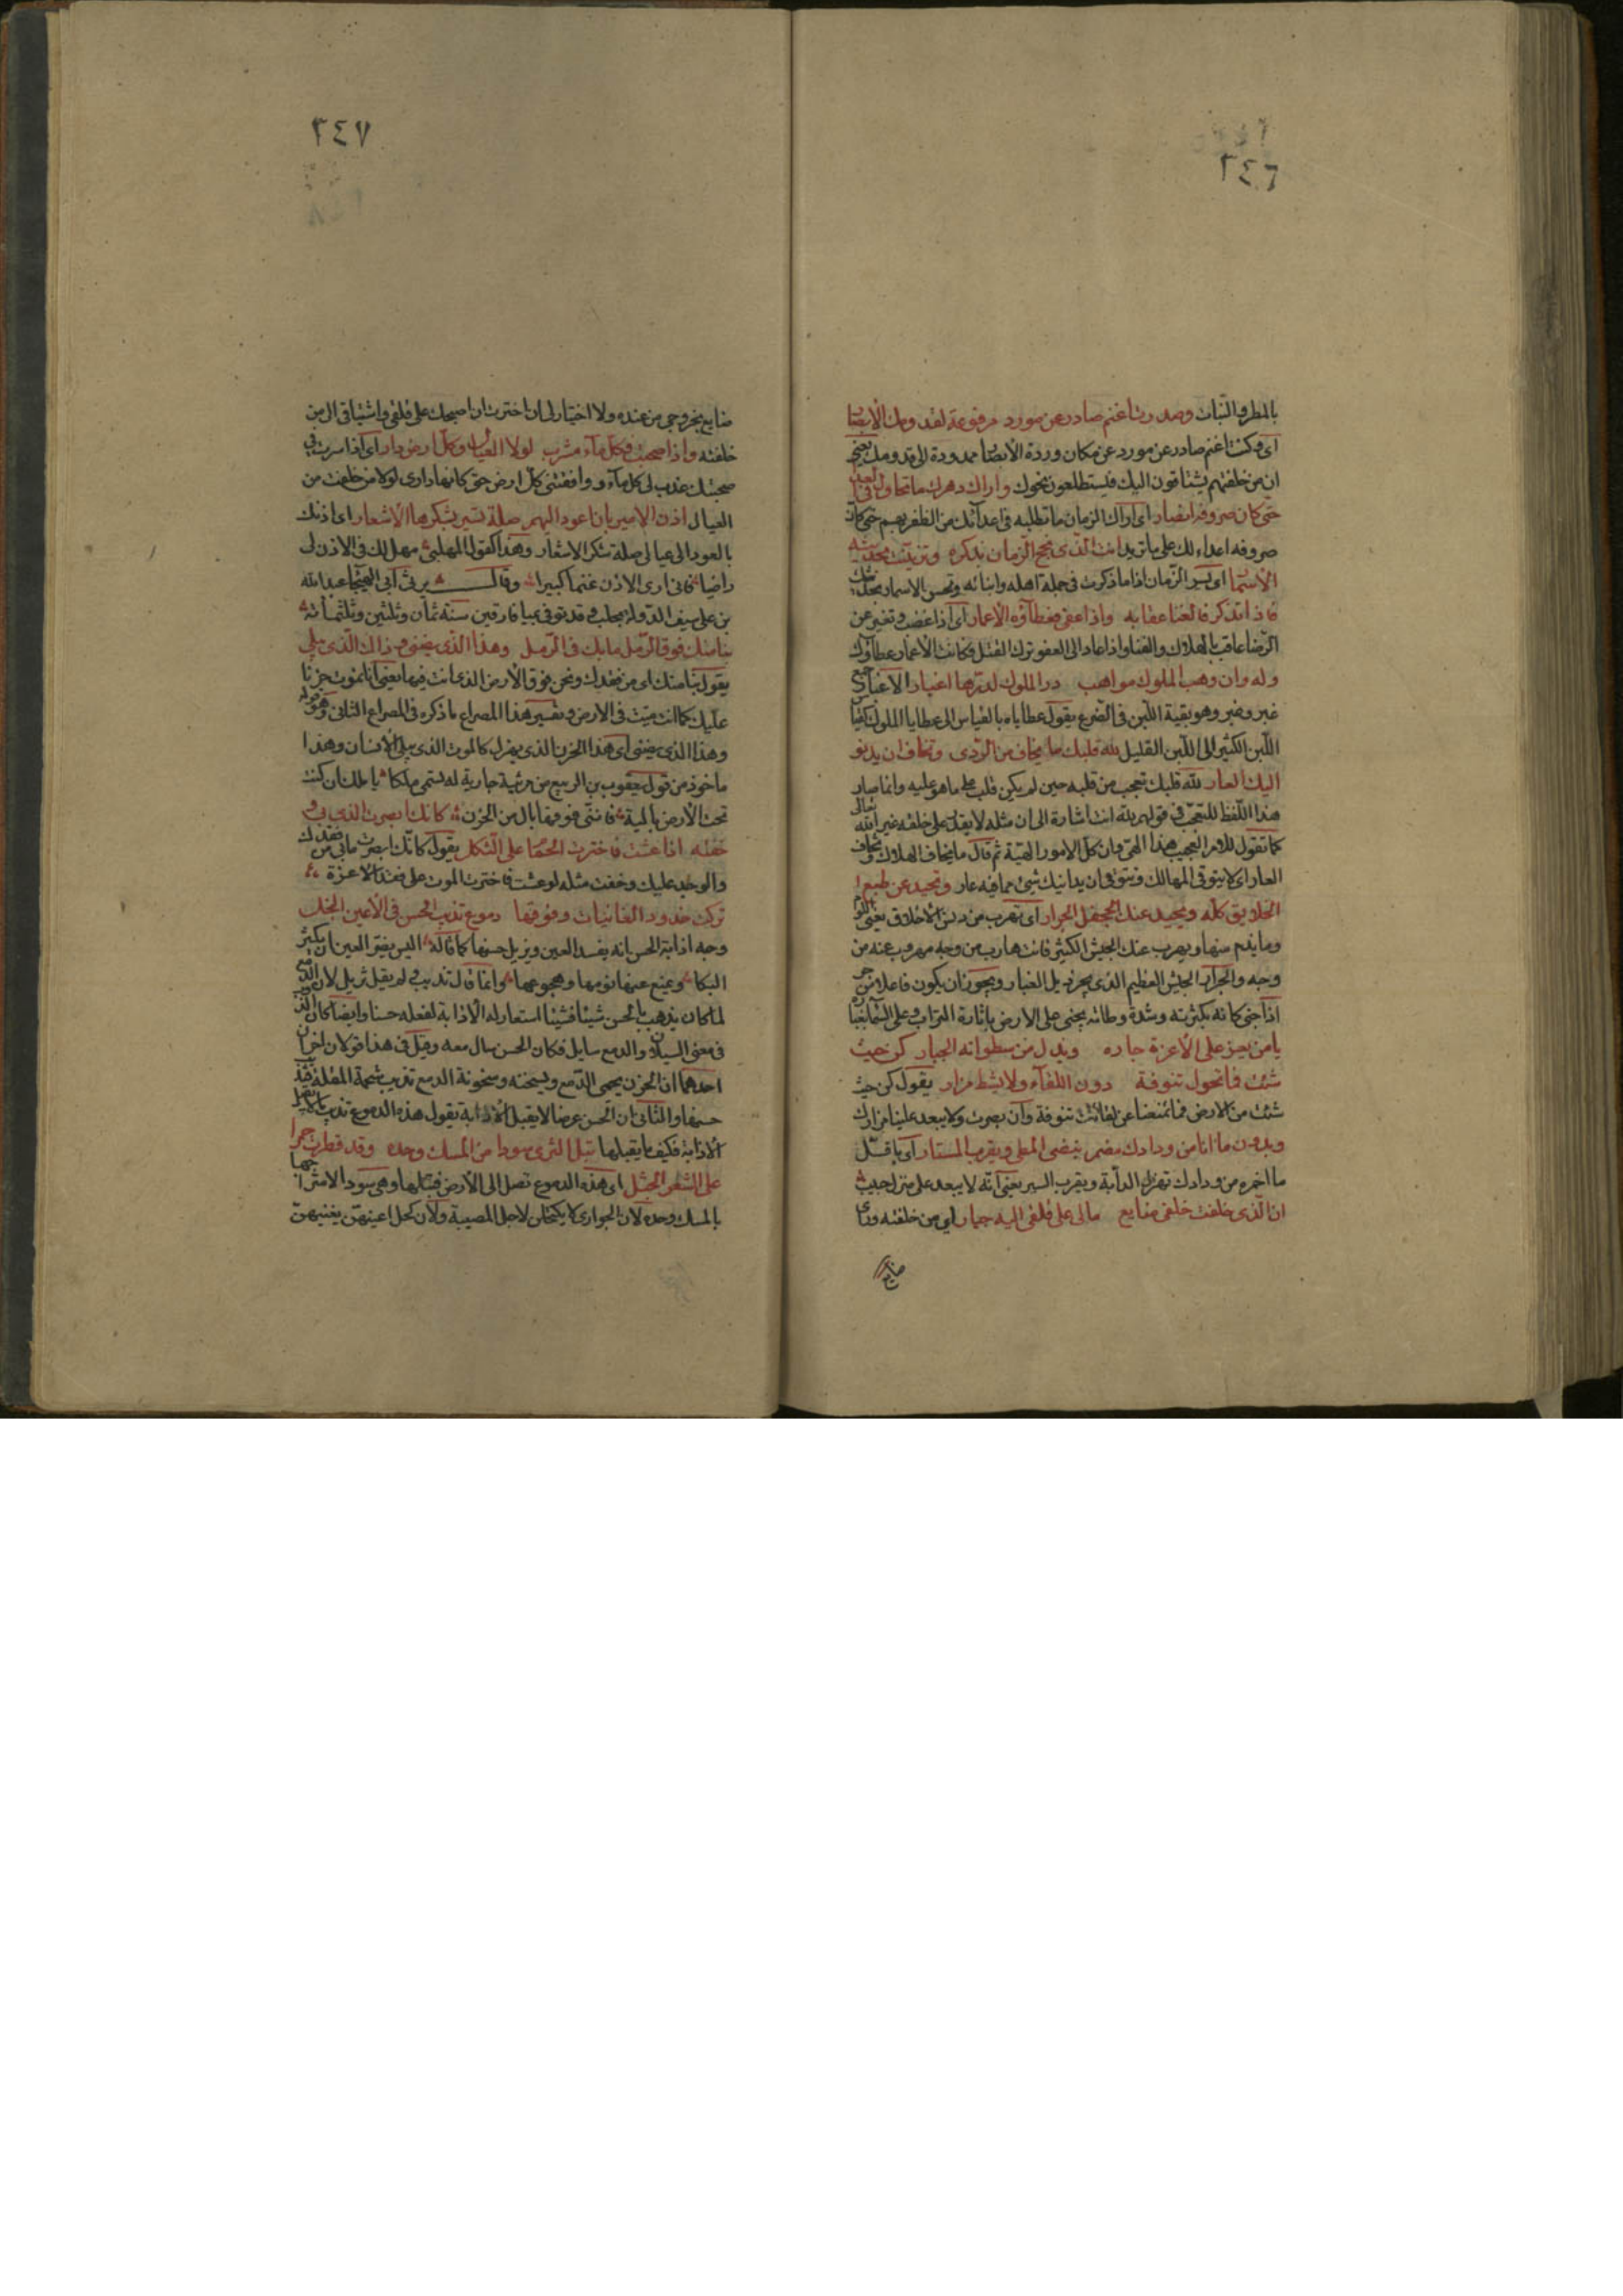 ٢٤٦
بالمطر والنبات وصدرت اغنم صادر عن مورد مرفوعة لقدومك الابصار
اى وكنت اغنم صادر عن مورد عن مكان وردة الابصار ممدودة الى قدومك يعنى
ان من خلفتهم يشتاقون اليك فيستطلعون نحوك واراك دهرك ما تحاول فى العدى
حتى كان صروفه انصار اى اراك الزمان ما تطلبه فى اعدآئك من الظفر بهم حتى كان
صروفه اعداء لك على ما تريد انت الذى بجح الزمان بذكره وتزينت بحديثه
الاسمار اى يسر الزمان اذا ما ذكرت فى جملة اهله وابنائه وتحسن الاسمار بحديثك
فاذا تنكر فالفنا عقابه واذا عفى فعطاؤه الاعمار اى اذا غضب وتغير عن
الرضا عاقب بالهلاك والفنا واذا عاد الى العفو ترك القتل فكانت الاعمار عطاؤك
وله وان وهب الملوك مواهب در الملوك لدرها اغبار الاغبار جمع
غبر وغبر وهو بقية اللبن فى الضرع يقول عطاياه بالقياس الى عطايا الملوك كقياس
اللبن الكثير الى اللبن القليل لله قلبك ما يخاف من الردى وتخاف ان يدنو
اليك العار لله قلبك تعجب من قلبه حين لم يكن قلب على ما هو عليه وانما صار
هذا اللفظ للتعجب فى قولهم لله انت اشارة الى ان مثله لا يقدر على خلقه غير الله تعالى
كما تقول للامر العجيب هذا الهى وان كل الامور الهية ثم قال ما يخاف الهلاك وتخاف
العار اى لا يتوقى المهالك ويتوقى ان يدانيك شيئ مما فيه عار وتحيد عن طبع
الخلايق كله ويحيد عنك الجحفل الجرار اى تهرب من دنس الاخلاق يعنى اللوم
وما يذم منها ويهرب عنك الجيش الكثير فانت هارب من وجه مهروب عنه من
وجه والجرار الجيش العظيم الذى يجر ذيل الغبار ويجوز ان يكون فاعلا من جر
اذا جنى كانه بكثرته وشدة وطائه يجنى على الارض باثارة التراب وعلى السما بغباره
يا من يعز على الاعزة جاره ويذل من سطواته الجبار كن حيث
شئت فما تحول تنوفة دون اللقآء ولا يشط مزار يقول كن حيث
شئت من الارض فما تمنعنا عن لقائك تنوفة وان بعدت ولا يبعد علينا مزارك
وبدون ما انا من ودادك مضمر ينضى المطى ويقرب المستار اى باقل
ما اضمره من ودادك تهزل الدآبة ويقرب السير يعنى انه لا يبعد على منزل حبيب
ان الذى خلفت خلفى ضايع ما لى على قلقى اليه خيار اى من خلفته وراى
ضايع
٢٤٧
ضايع بخروجى من عنده ولا اختيار لى ان اخترت ان اصحبك على قلقى واشتياقى الى من
خلفته واذا صحبت فكل مآء مشرب لولا العيال وكل ارض دار اى اذا سرت فى
صحبتك عذب لى كل مآء ووافقتنى كل ارض حتى كانها دارى لولا من خلفت من
العيال اذن الامير بان اعود اليهم صلة تسير بشكرها الاشعار اى اذنك
بالعود الى عيالى صلة تشكر الاشعار وهذا كقول المهلبى مهل لك فى الاذن لى
راضيا فانى ارى الاذن غنما كبيرا وقال يرثى ابى الهيجا عبد الله
بن على سيف الدولة بحلب وقد توفى بميا فارقين سنة ثمان وثلثين وثلثمائة
بنا منك فوق الرمل ما بك فى الرمل وهذا الذى يضنى كذاك الذى يبلى
يقول بنا منك اى من فقدك ونحن فوق الارض الذى انت فيها يعنى انا نموت حزنا
عليك كما انت ميت فى الارض وتفسير هذا المصراع ما ذكره فى المصراع الثانى وهو قوله
وهذا الذى يضنى اى هذا الحزن الذى يهزل كالموت الذى يبلى الانسان وهذا
ماخوذ من قول يعقوب بن الربيع من مرثية جارية له تسمى ملكا يا ملك ان كنت
تحت الارض بالية فاننى فوقها بال من الحزن كانك ابصرت الذى بى و
خفته اذا عشت فاخترت الحمام على الثكل يقول كانك ابصرت ما بى من فقدك
والوجد عليك وخفت مثله لو عشت فاخترت الموت على فقد الاعزة
تركت خدود الغانيات وفوقها دموع تذيب الحسن فى الاعين النجل
وجه اذابة الحسن انه يفسد العين ويزيل حسنها كما قاله اليس يضر العين ان يكثر
البكا ويمنع عنها نومها وهجوعها وانما قال تذيب ولم يقل تزيل لان الدمع
لما كان يذهب بالحسن شيئا فشيئا استعار له الاذابة لفعله حسنا وايضا كان الذوب
فى معنى السيلان والدمع سايل فكان الحسن سال معه وقيل فى هذا قولان اخران
احدهما ان الحزن يحمى الدمع ويسخنه وسخونة الدمع تذيب شحمة المقلة فتذهب
حسنها والثانى ان الحسن عرض لا يقبل الاذابة يقول هذه الدموع تذيب ما لا يقبل
الاذابة فكيف ما يقبلها تبل الثرى سودا من المسك وحده وقد قطرت حمرا
على الشعر الجثل اى هذه الدموع تصل الى الارض فتبلها وهى سود الامتزاجها
بالمسك وحده لان الجوارى لا يكتحلن لاجل المصيبة ولان كحل اعينهن يغنيهن